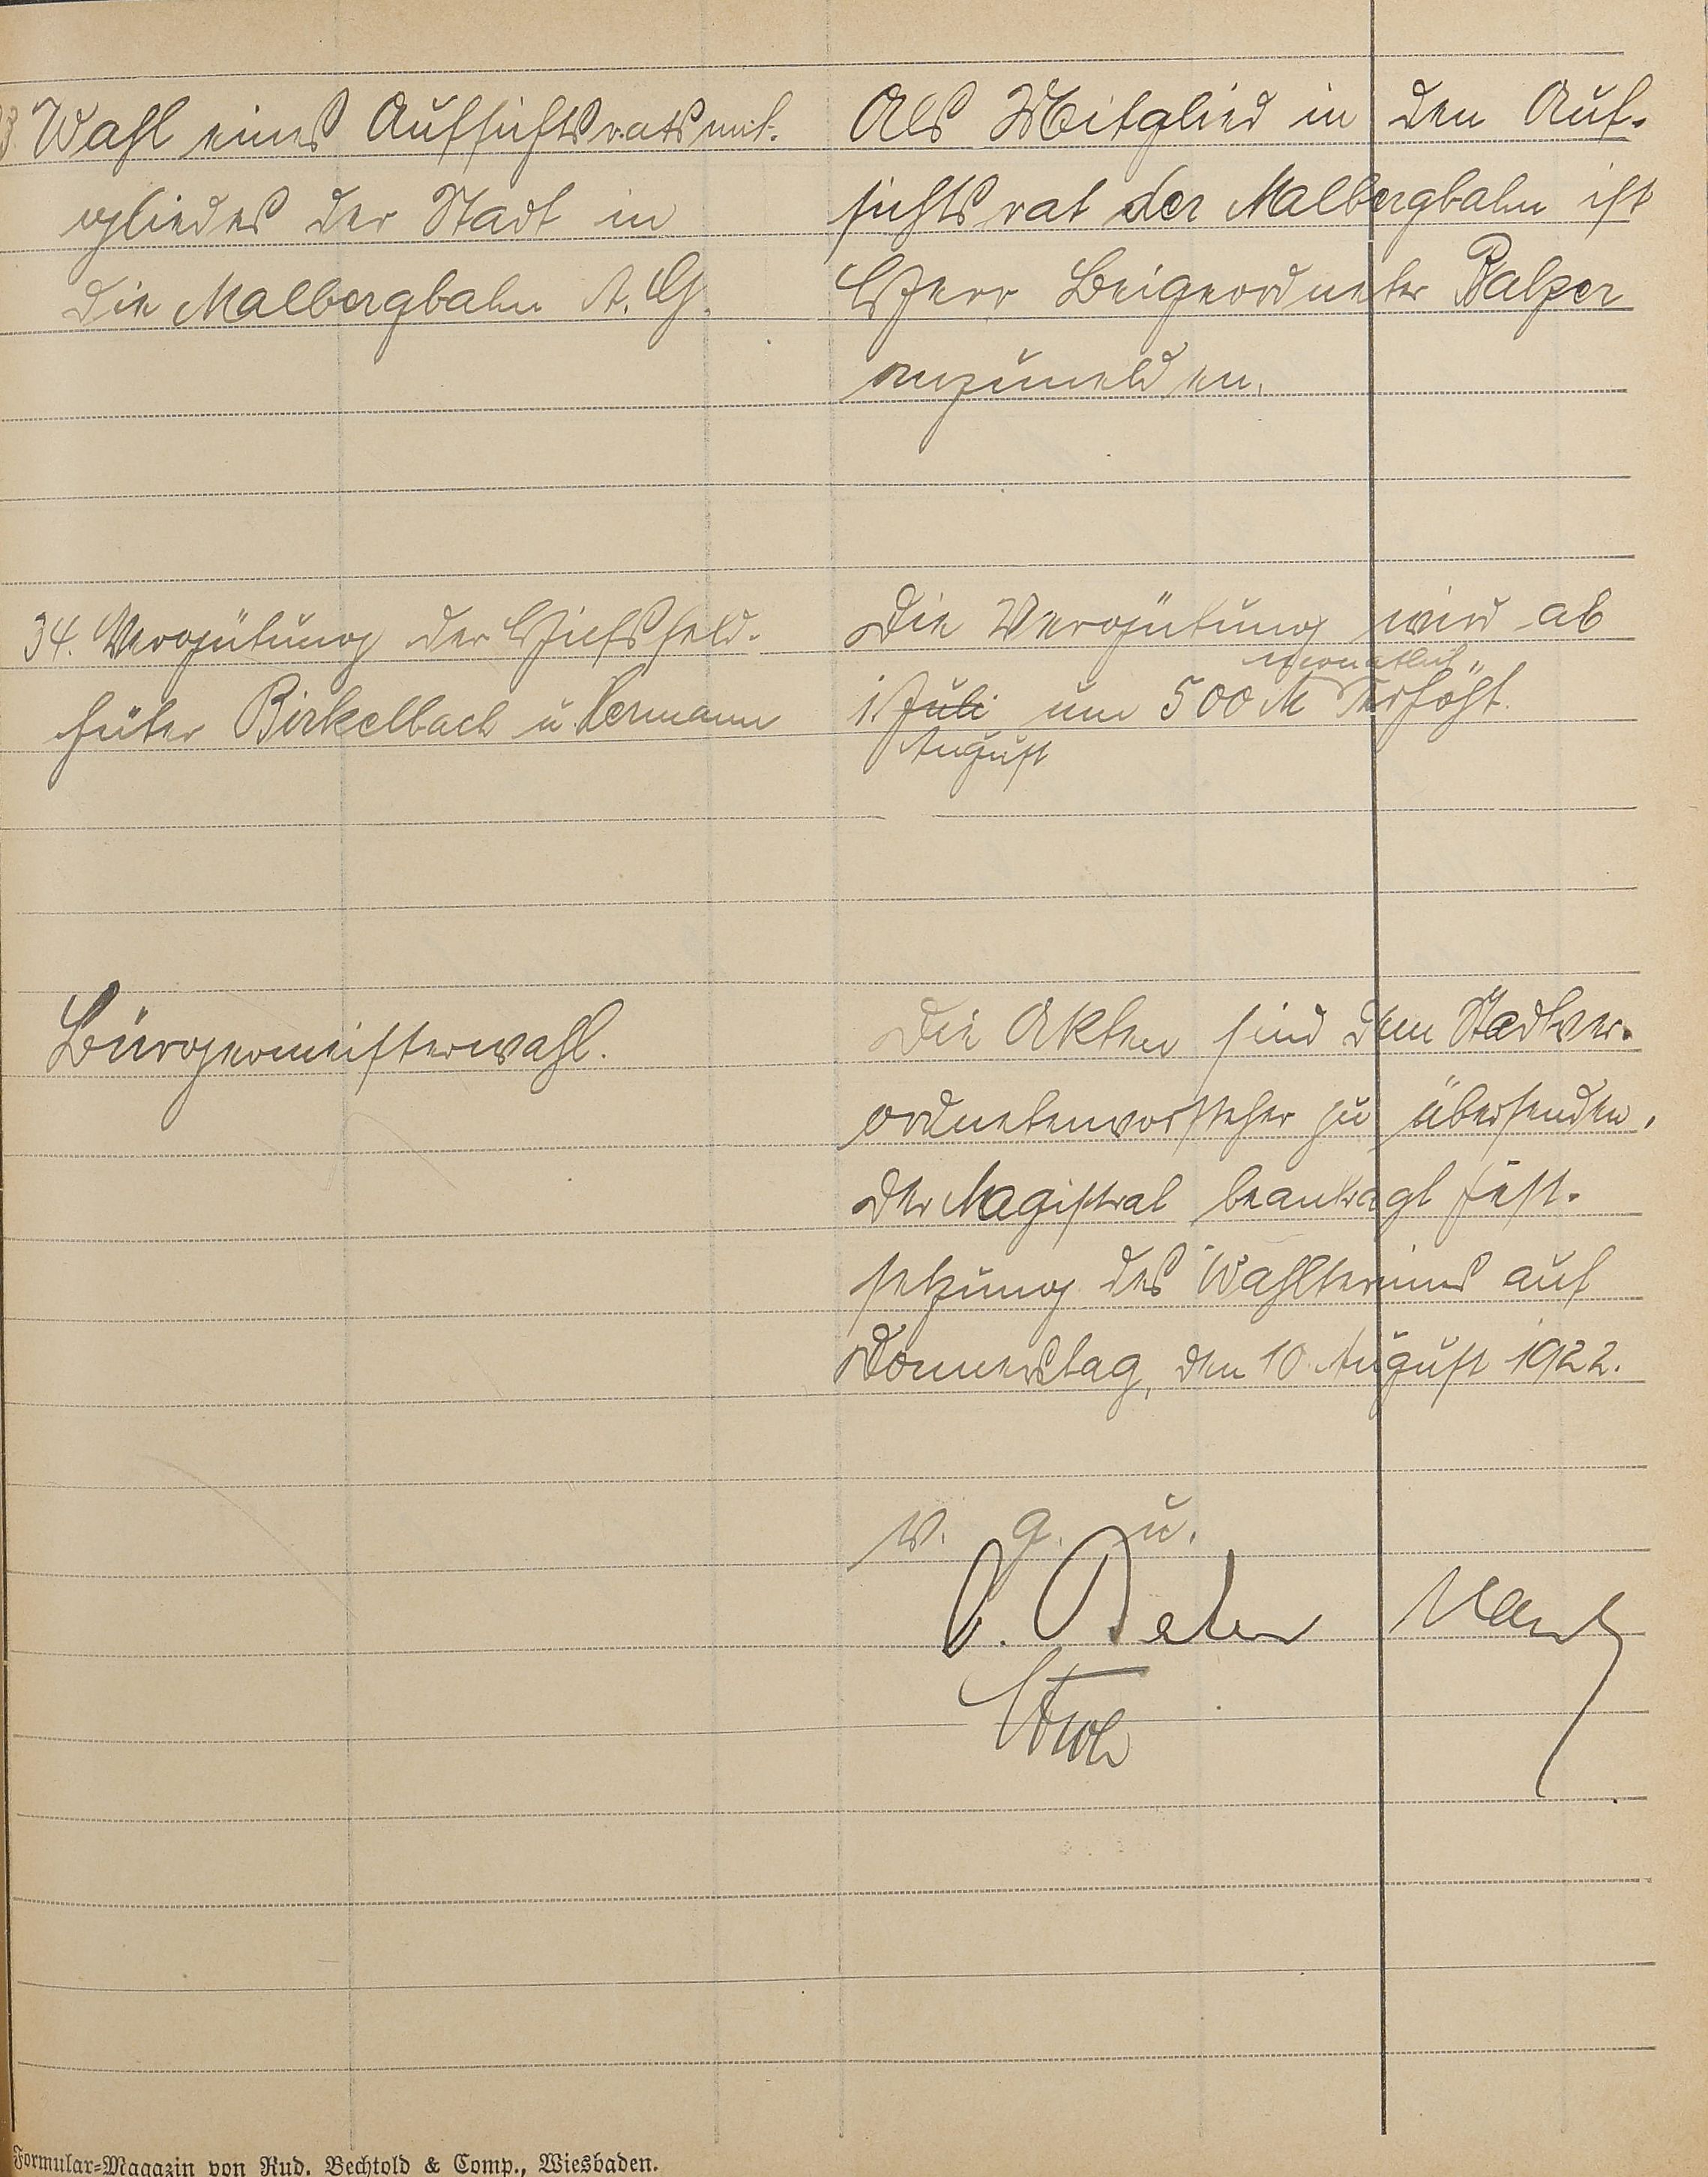 33. Wahl eines Aufsichtsratsmit-
gliedes der Stadt in
die Malbergbahn A. G.
Als Mitglied in den Auf-
sichtsrat der Malbergbahn ist
Herr Beigeordneter Balzer
anzumelden.
34. Vergütung der Hilfsfeld-
hüter Birkelbach u. Hermann
Die Vergütung wird ab
monatlich
1. Juli um 500 M erhöht.
August
Bürgermeisterwahl.
Die Akten sind dem Stadtver-
ordnetenvorsteher zu übersenden.
Der Magistrat beantragt Fest-
setzung des Wahltermins auf
Donnerstag, den 10. August 1922.
v. g. u.
Formular-Magazin von Rud. Bechtold & Comp., Wiesbaden.